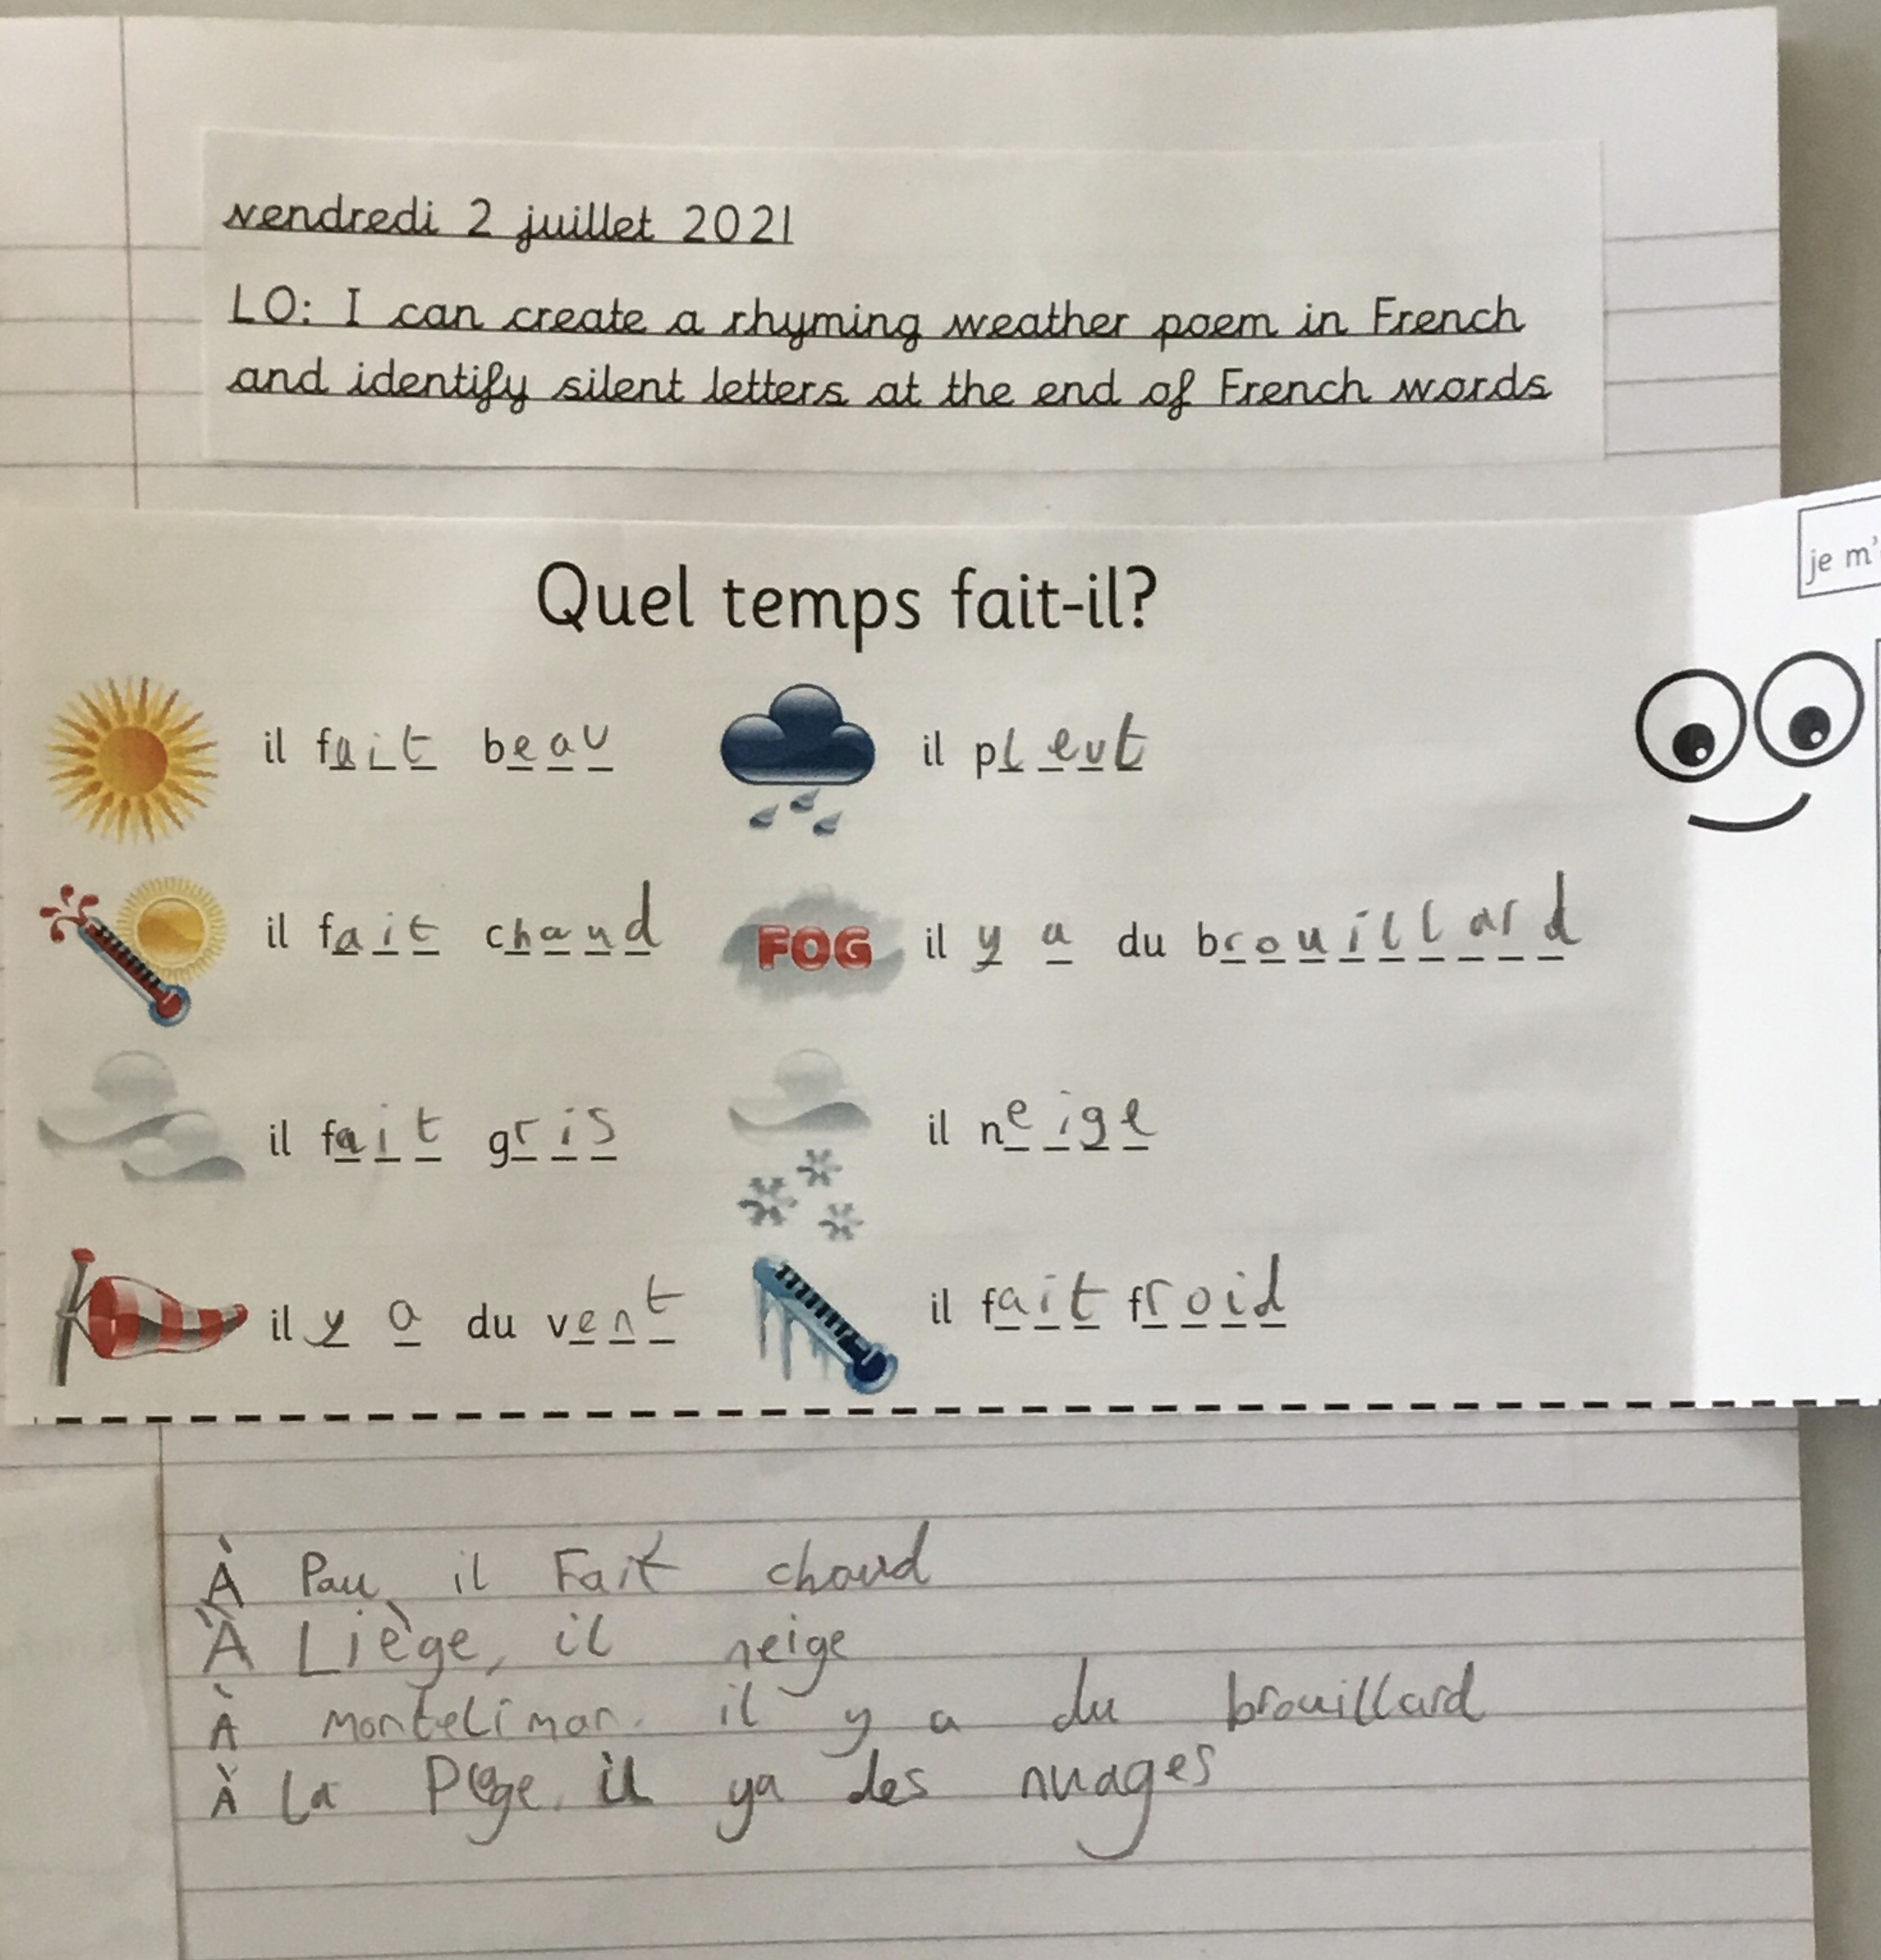 vendredi 2 juillet 2021
LO: I can create a rhyming weather poem in French
and identify silent letters at the end of French words
je m'
Quel temps fait-il?
il fait beau
il pleut
il fait chaud
FOG il y a du brouillard
il fait gris
il neige
il y a du vent
il fait froid
À Pau, il Fait chaud
À Liège, il neige
À montelimar. il y a du brouillard
À la il ya des nuages